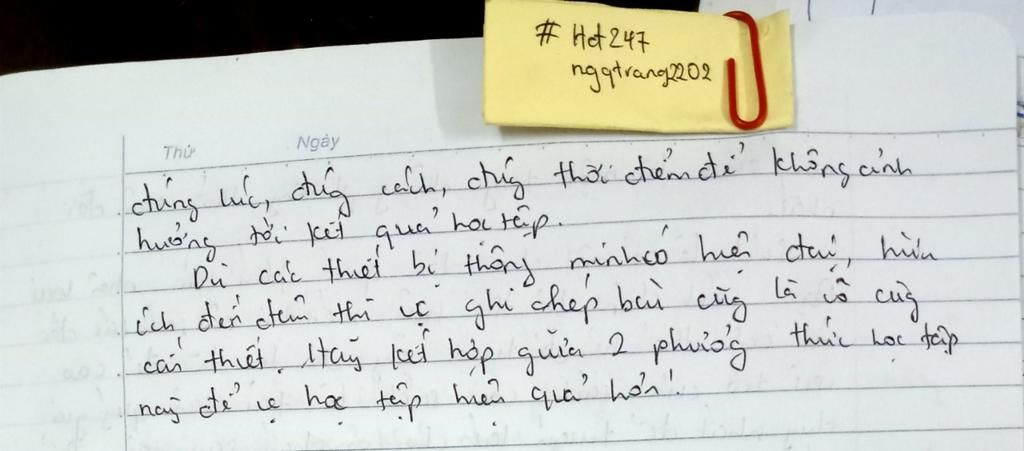 # Hct247
ngqtrang2202
Thứ Ngày
đúng lúc, đúng cách, đúng thời điểm để không ảnh
hưởng tới kết quả học tập.
Dù các thiết bị thông minh có hiện đại, hữu
ích đến đêm thì vc ghi chép bài cũng là vô cùng
cần thiết. Hãy kết hợp giữa 2 phương thức học tập
này để vc học tập hiệu quả hơn!